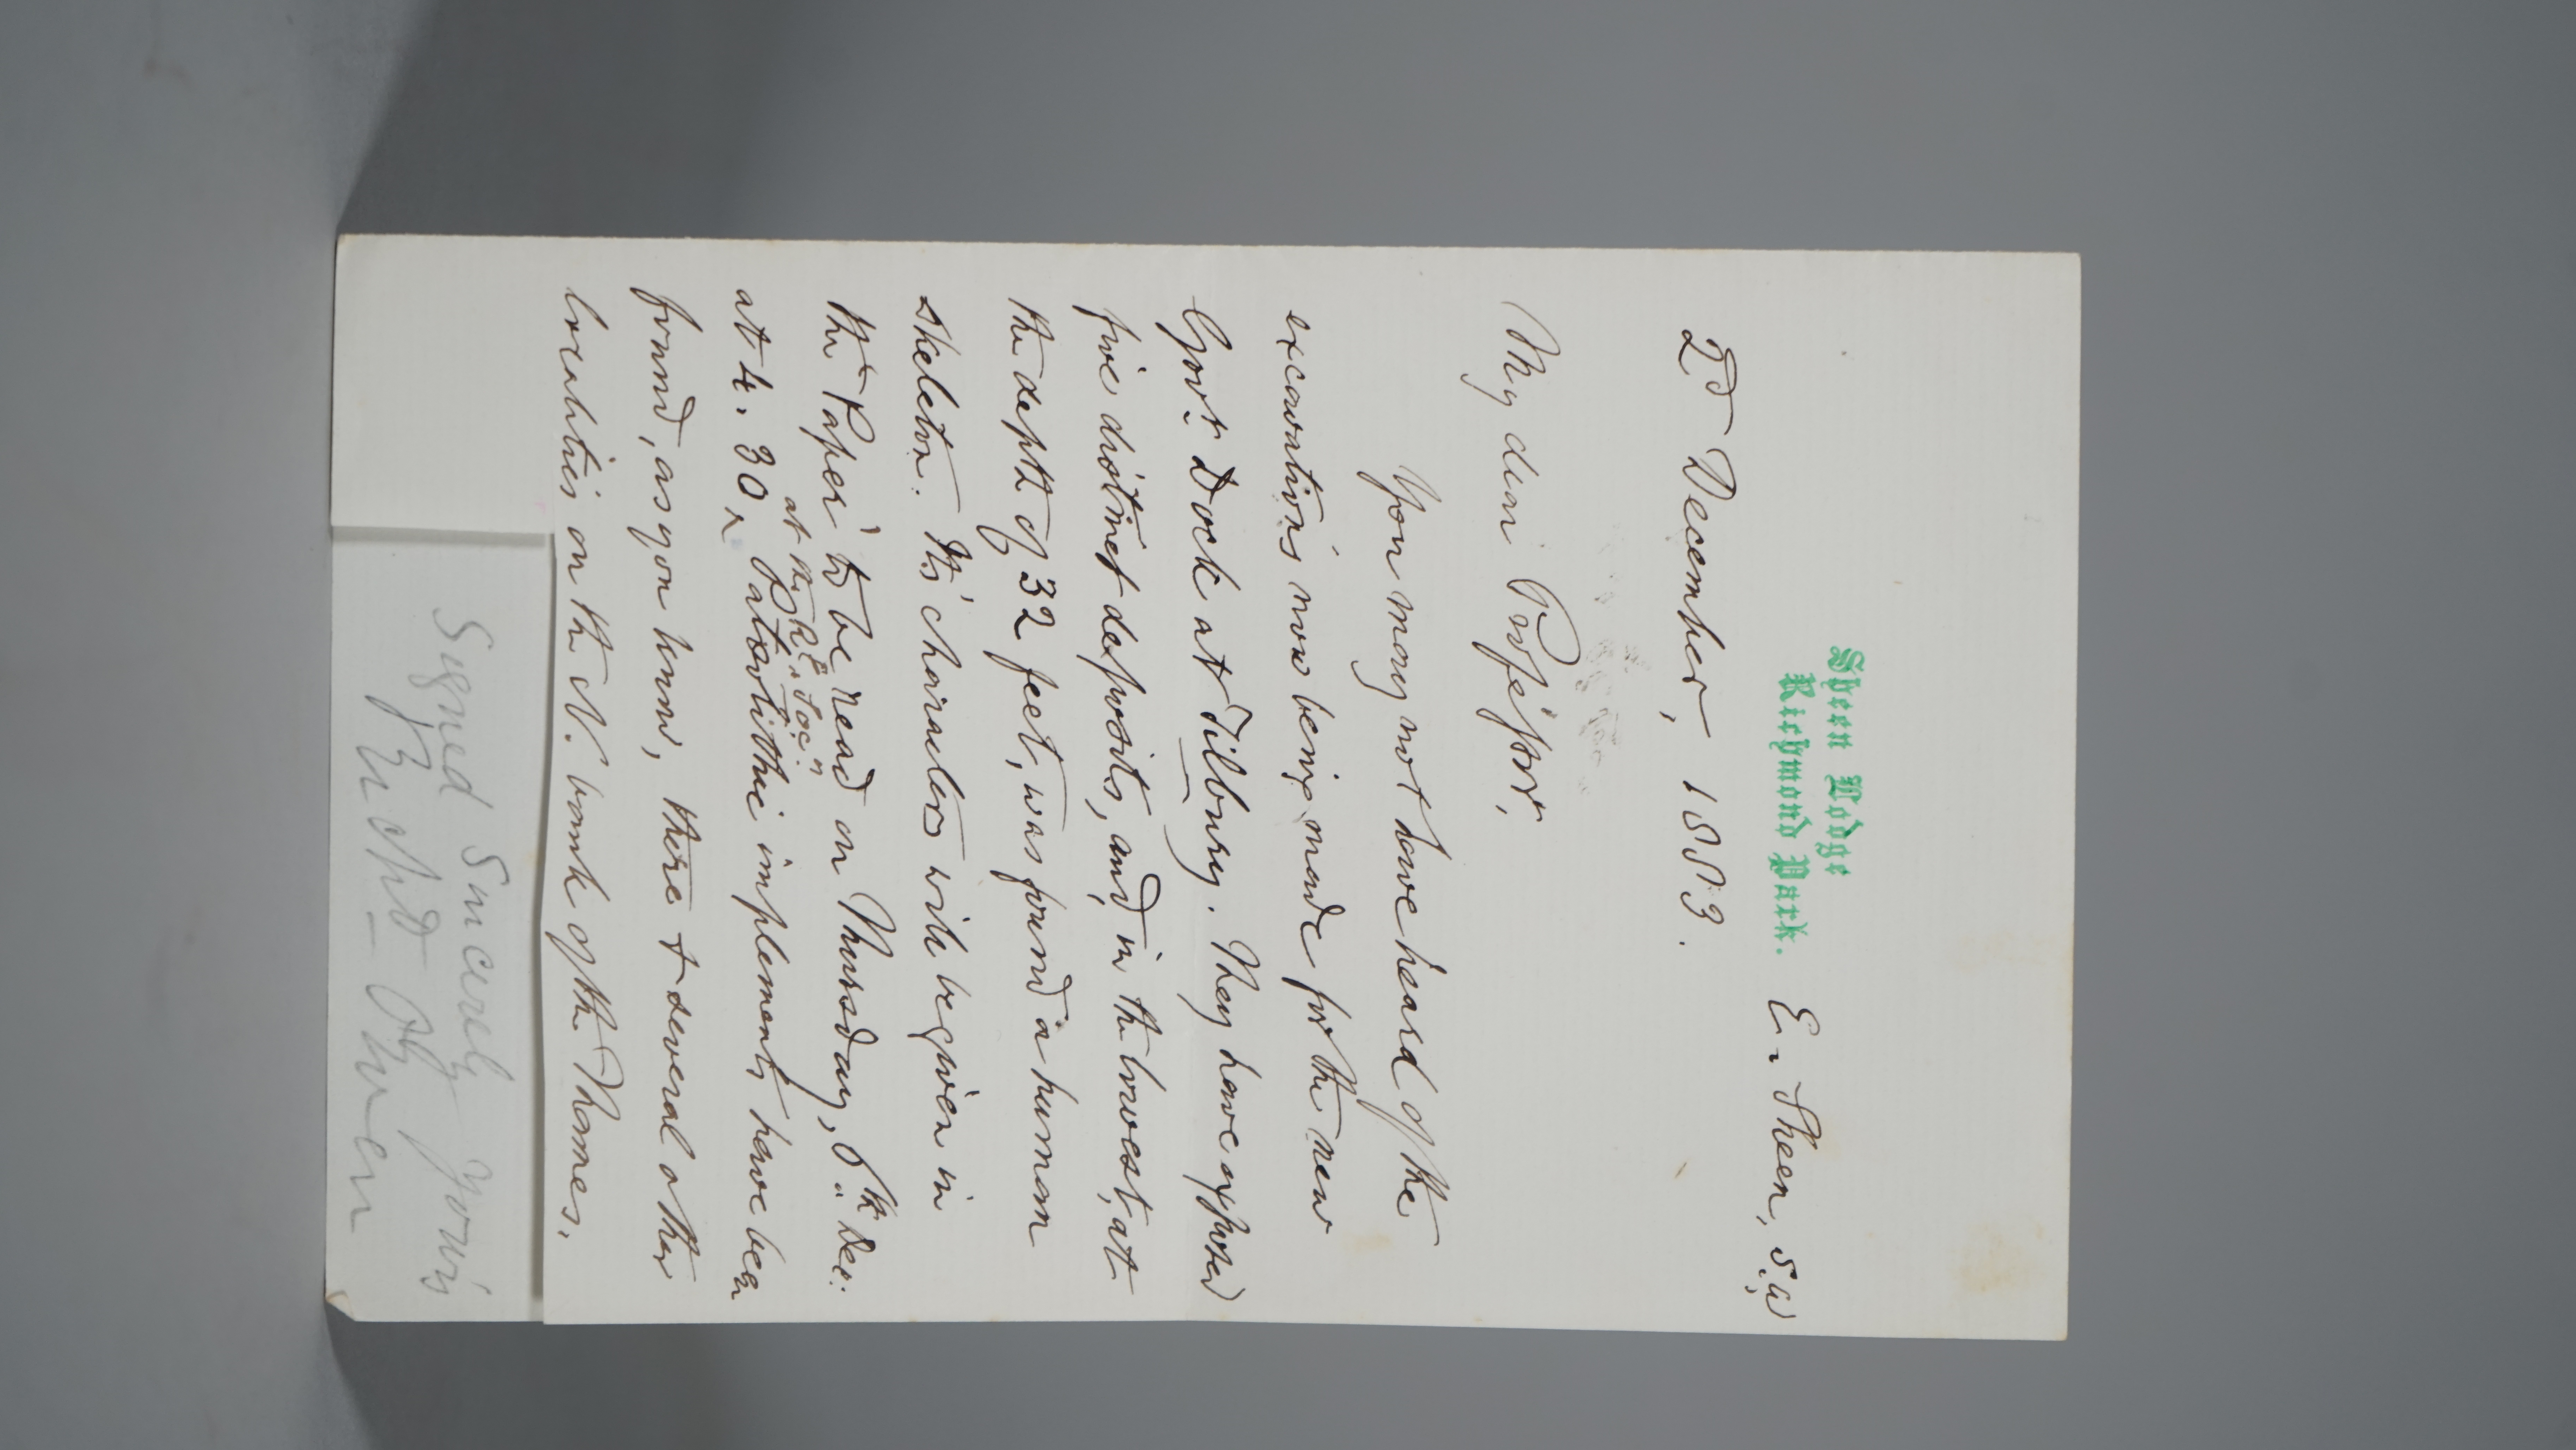 Sheen Lodge
Richmond Park. E. Sheen, S.W
2d December, 1883.
My dear Professor,
You may not have heard of the
excavations now being made for the new
Govt. Dock at Tilbury. They have exposed
five distinct deposits, and, in the lowest, at
the depth of 32 feet, was found a human
skeleton. Its characters will be given in
the 'Paper' to be read on Thursday, 6th Dec.
at the Rl. Socy.
at 4.30 ^ Palæolithic implements have been
found, as you know, there & several other
localities on the N. bank of the Thames.
Signed Sincerely Yours
Richd Owen